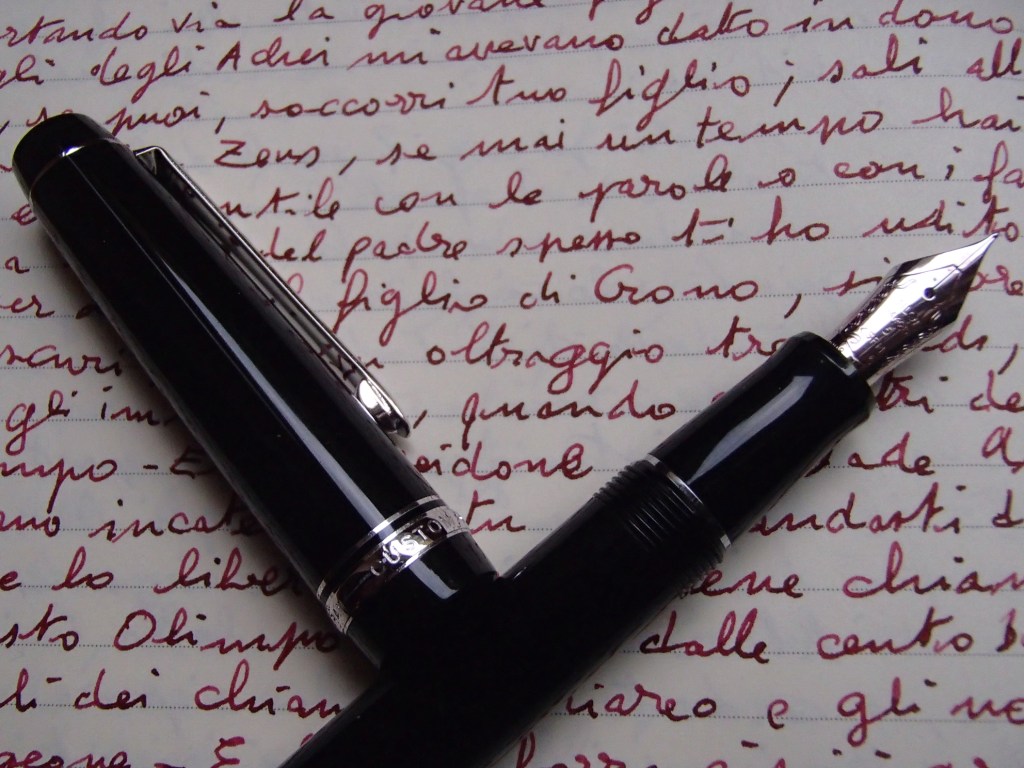 rtando via la giovane
gli degli Achei mi avevano dato in dono
se puoi, soccorri tuo figlio; sali all
Zeus, se mai un tempo hai
ntile con le parole o con i fa
del padre spesso ti ho udito
figlio di Crono,
oltraggio tra
gli im , quando tri de
mpo - E eidone
ano incate tu andasti d
e lo libe ene chiam
sto Olimpo dalle cento b
li dei chiam iareo e gli uo
CUSTOM